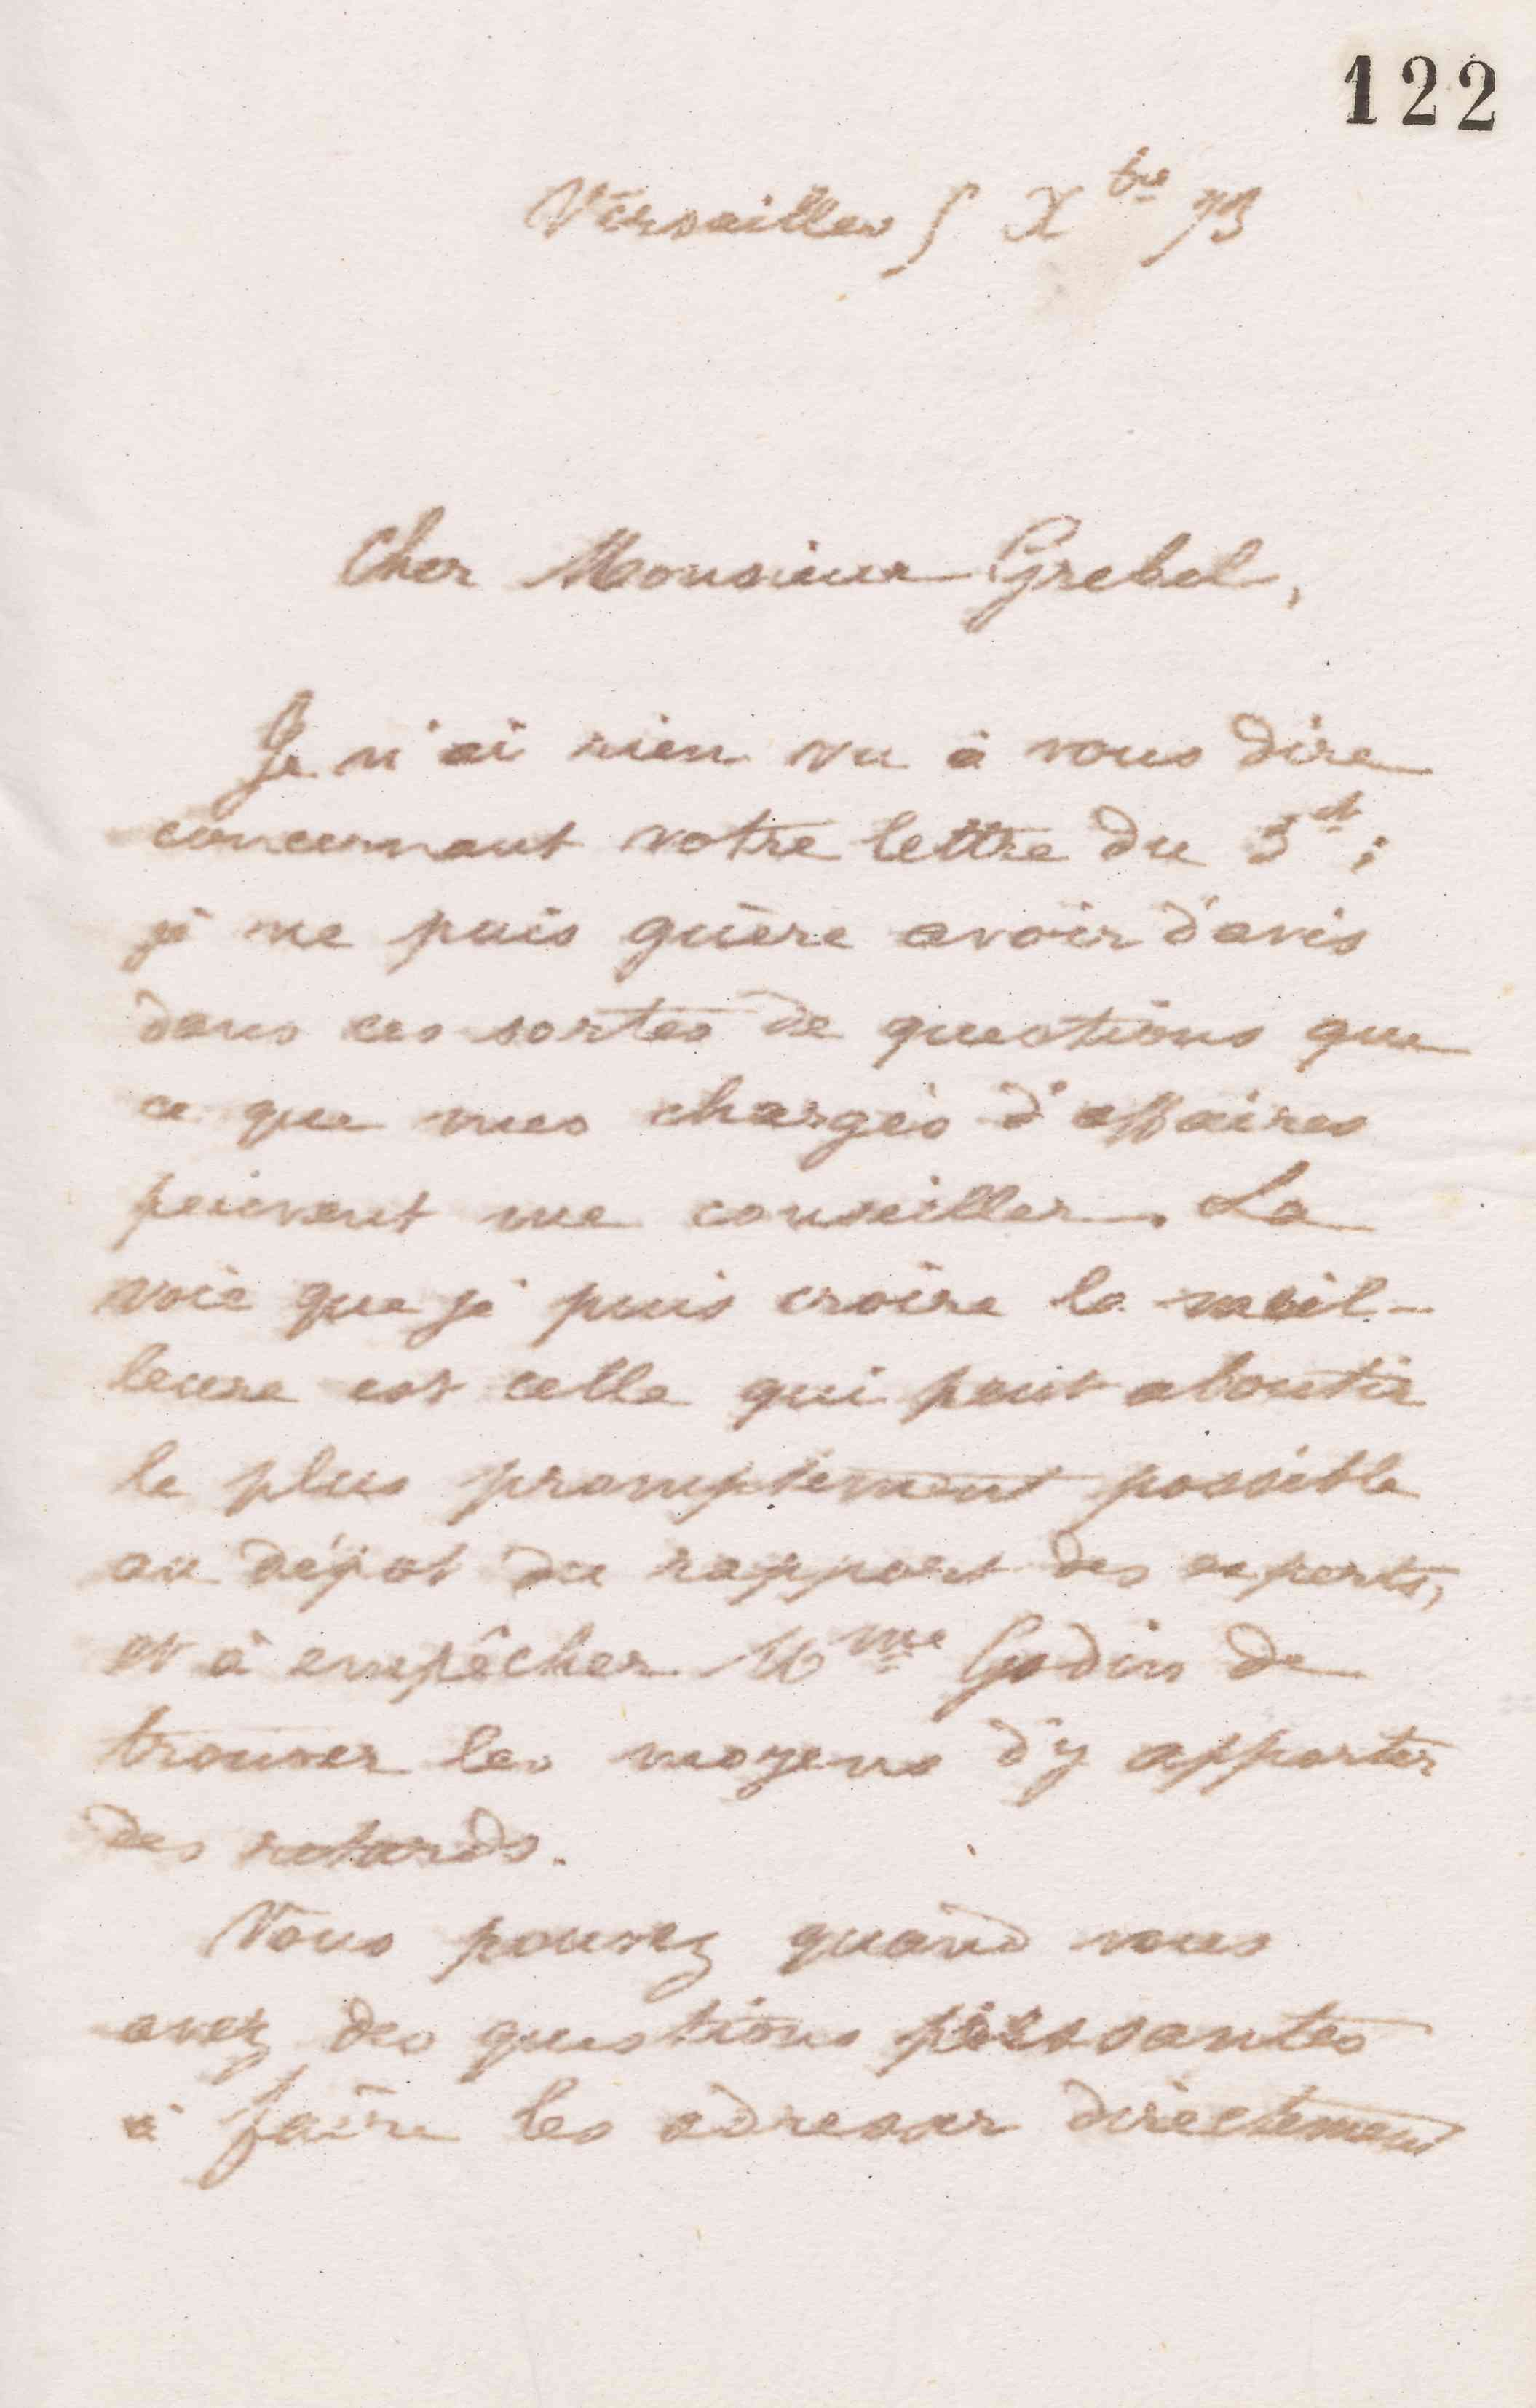 122
Versailles 5 Xbre 73
Cher Monsieur Grebel,
Je n'ai rien vu à vous dire
concernant votre lettre du 3 ct;
je ne puis guère avoir d'avis
dans ces sortes de questions que
ce que mes chargés d'affaires
peuvent me conseiller. La
voie que je puis croire la meil-
leure est celle qui peut aboutir
le plus promptement possible
au dépot du rapport des experts,
et à empêcher Mme Godin de
trouver les moyens d'y apporter
des retards.
Vous pouvez quand vous
avez des questions pressantes
à faire les adresser directement